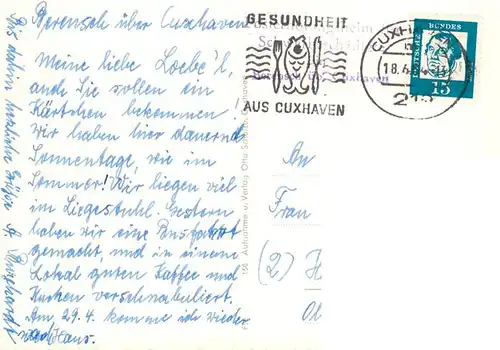 Berensch über Cuxhaven
Meine liebe Loebe'l,
auch Sie sollen ein
Kärtchen bekommen!
Wir haben hier dauernd
Sonnentage, wie im
Sommer! Wir liegen viel
im Liegestuhl. Gestern
haben wir eine Busfahrt
gemacht, und in einem
Lokal guten Kaffee und
Kuchen verschnabuliert.
Am 29.4. komme ich wieder
nach Haus.
Bis dahin herzliche Grüße
GESUNDHEIT
AUS CUXHAVEN
CUXH
18.
DEUTSCHE BUNDES
15
Aufnahme u. Verlag Otto
An
Frau
(2) H